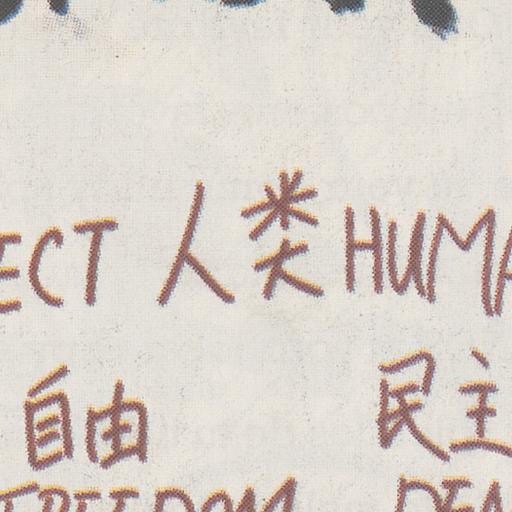 ECT 人类 HUMA
自由 民主
FREEDOM DEA